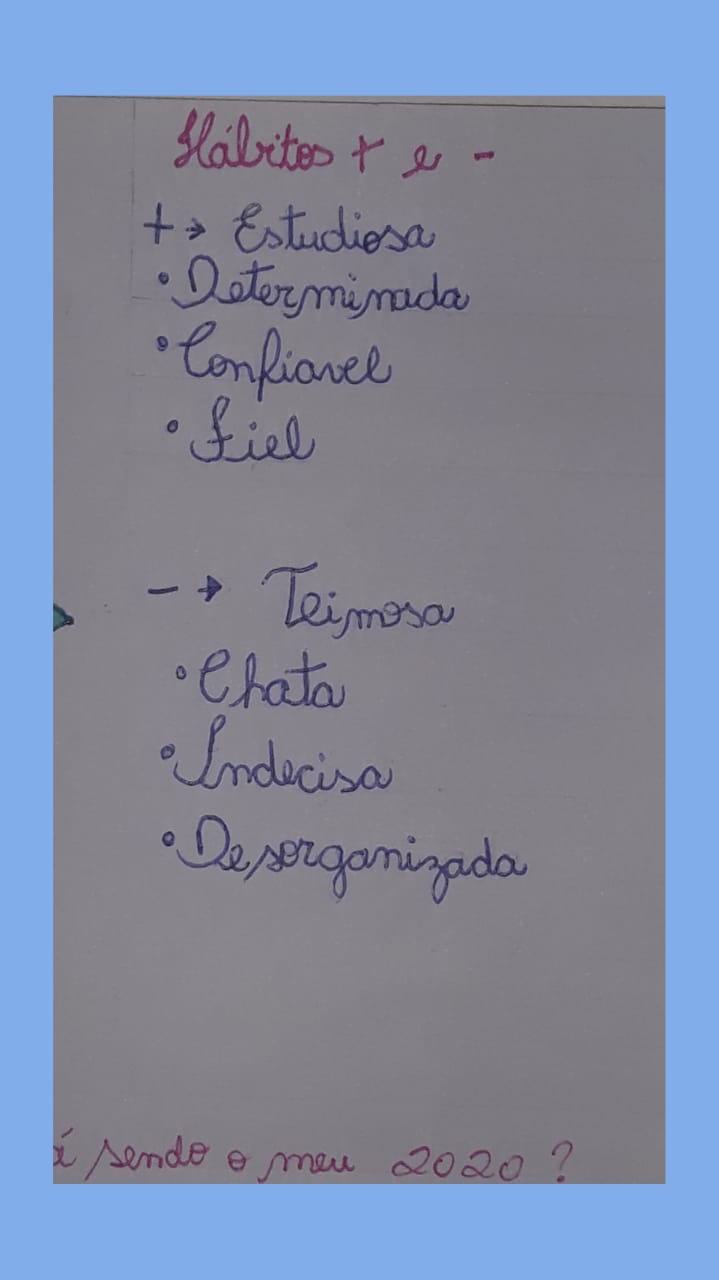 Hábitos + e -
+ → Estudiosa
• Determinada
• Confiavel
• Fiel
- → Teimosa
• Chata
• Indecisa
• Desorganizada
á sendo o meu 2020?